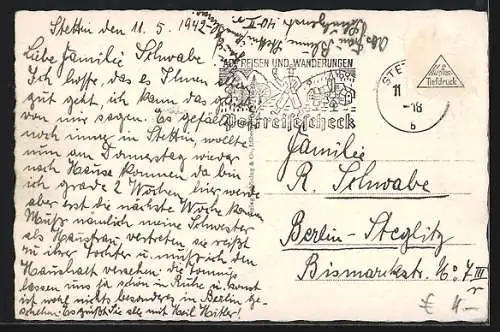 Stettin den 11.5.1942.
Liebe Familie Schwabe.
Ich hoffe, das es Ihnen
gut geht ich kann das
von mir sagen. Es gefällt
noch immer in Stettin, wollte
nun am Donnerstag wieder
nach Hause kommen da bin
ich grade 2 Wochen hier werde
aber erst die nächste Woche kommen
Muß nämlich meine Schwester
als Hausfrau vertreten sie reist
zu ihrer Tochter u. muß ich den
Haushalt versehen. die Tommis
lassen uns ja schön in Ruhe u. sonst
ist wohl nichts besonders in Berlin ge-
schehen. Es grüßt Sie alle mit Heil Hitler!
Abs. Frau Blume Stettin
AUF REISEN UND WANDERUNGEN
Postreisescheck
STE
11
-18
b
Kupfer-
Tiefdruck
Familie
R. Schwabe
Berlin-Steglitz
Bismarckstr. No 7 III
r
€ 4,-